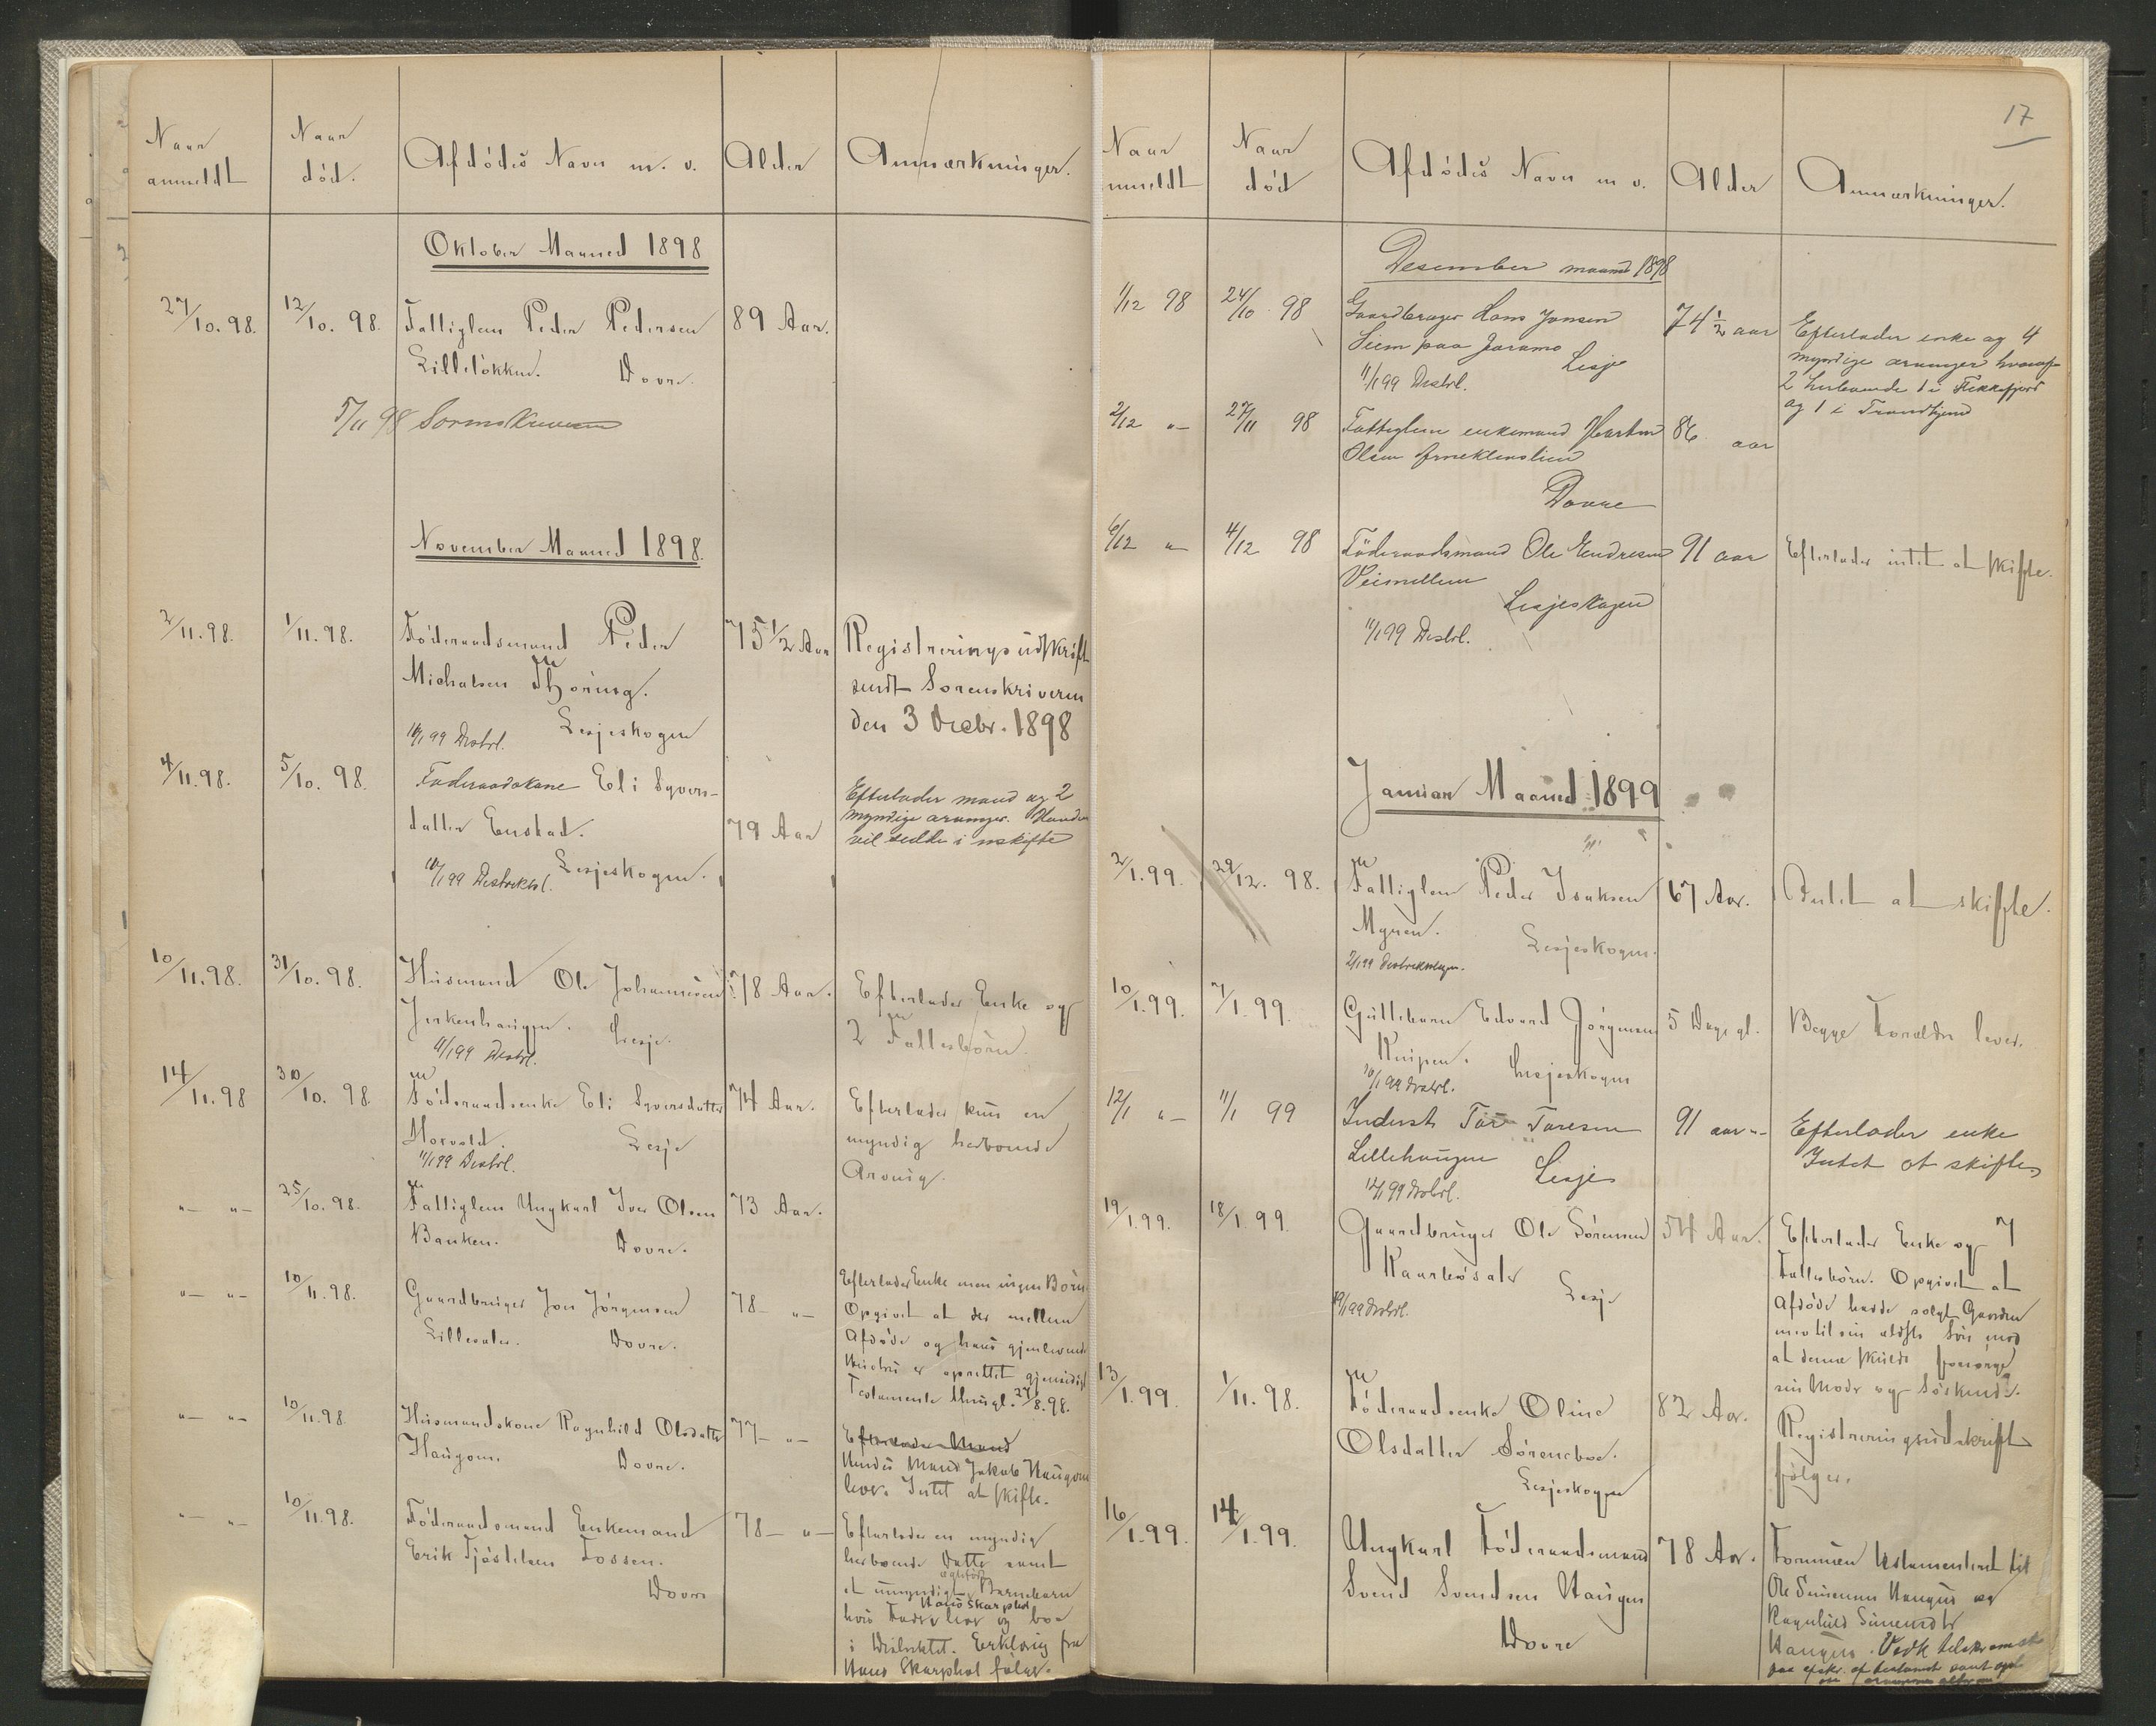 Naar anmeldt
Naar død.
Afdødes Navn m. v.
Alder
Anmærkninger.
Oktober Maaned 1898
27/10. 98.
12/10. 98.
Fattiglem Peder Pedersen
89 Aar.
Lilleløkken. Dovre.
5/11 98 Sorenskriveren
November Maaned 1898.
2/11. 98.
1/11. 98.
Føderaadsmand Peder
75 1/2 Aar
Registreringsudskrift
Michalsen Thøring.
sendt Sorenskriveren
Lesjeskogen
den 3 Decbr. 1898
99 Distrl.
4/11. 98.
5/10. 98.
Føderaadskone Eli Syvers-
datter Enstad.
79 Aar
Efterlader mand og 2
myndige arvinger. Manden
vil sidde i uskifte
Lesjeskogen.
10/1 99
10/11. 98.
31/10. 98.
Husmand Ole Johannesen
78 Aar.
Efterlader Enke og
Lesje.
2 Fællesbørn.
11/1 99 Distrl.
14/11. 98
30/10. 98.
Føderaadsenke Eli Syversdatter
74 Aar.
Efterlader kun en
Horvald. Lesje
myndig herboende
11/1 99 Distrl.
Arving.
" "
25/10. 98.
Fattiglem Ungkarl Iver Olsen
73 Aar.
Banken. Dovre.
" "
10/11. 98.
Gaardbruger Jon Jørgensen
78 "
Efterlader Enke men ingen Børn
Dovre.
Opgivet at der mellem
Afdøde og hans gjenlevende
Hustru er oprettet gjensidigt
Testamente 27/8. 98.
" "
10/11. 98.
Husmandskone Ragnhild Olsdatter
77 "
Efterlader Mand
Haugom. Dovre.
Hendes Mand Jakob Haugom
lever. Intet at skifte.
" "
10/11. 98.
Føderaadsmand Enkemand
78 "
Efterlader en myndig
Erik Tjøstelsen Fossen.
herboende Datter samt
Dovre
et umyndigt Barnebarn
hvis Fader Hans Skarphol lever og bor
i Distriktet. Erklæring fra
Hans Skarphol følger.
17
Naar anmeldt
Naar død
Afdødes Navn m v.
Alder
Anmærkninger.
Desember maaned 1898
1/12 98
24/10 98
Gaardbruger Hans Jonsen
74 1/2 aar
Efterlader enke og 4
Siem paa Joramo
myndige arvinger hvoraf
Lesje
2 herboende 1 i Flekkefjord
11/1 99 Distrl.
og 1 i Trondhjem
2/12 "
27/11 98
Fattiglem enkemand
86 aar
Olsen
Dovre
6/12 "
4/12 98
Føderaadsmand Ole Endresen
91 aar
Efterlader intet at skifte.
Veimellem
Lesjeskogen
11/1 99 Distrl.
Januar Maaned 1899
2/1. 99.
29/12. 98.
Fattiglem Peder Isaksen
67 Aar.
Intet at skifte.
Myren.
Lesjeskogen.
2/1 99
10/1. 99.
7/1. 99.
Guttebarn Edvard Jørgensen
5 Dage gl.
Begge Forældre lever.
Knipen. Lesjeskogen
10/1 99 Distrl.
12/1 "
11/1 99
Inderst Tor Toresen
91 aar "
Efterlader enke
Lillehaugen
Intet at skifte
Lesje
12/1 99 Distrl.
19/1. 99.
18/1. 99.
Gaardbruger Ole Sørensen
54 Aar.
Efterlader Enke og 7
Fællesbørn. Opgivet at
Lesje
Afdøde havde solgt Gaarden
19/1 99 Distrl.
sin ældste Søn mod
at denne skulde forsørge
sin Moder og Søskende.
13/1. 99.
1/11. 98.
Føderaadsenke Oline
82 Aar.
Registreringsudskrift
Olsdatter Sørensboe.
følger.
Lesjeskogen
16/1. 99.
14/1. 99.
Ungkarl Føderaadsmand
78 Aar.
Formuen testamenteret til
Svend Svendsen Haugen
Ole Simensen Haugen og
Dovre
Ragnhild Simensdtr
Haugen.